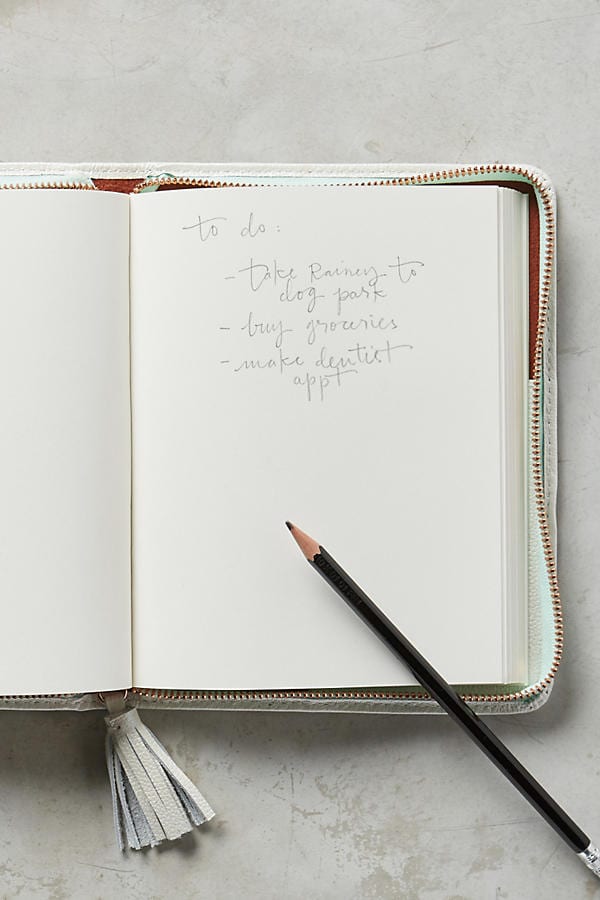 to do:
- take Rainey to
dog park
- buy groceries
- make dentist
appt